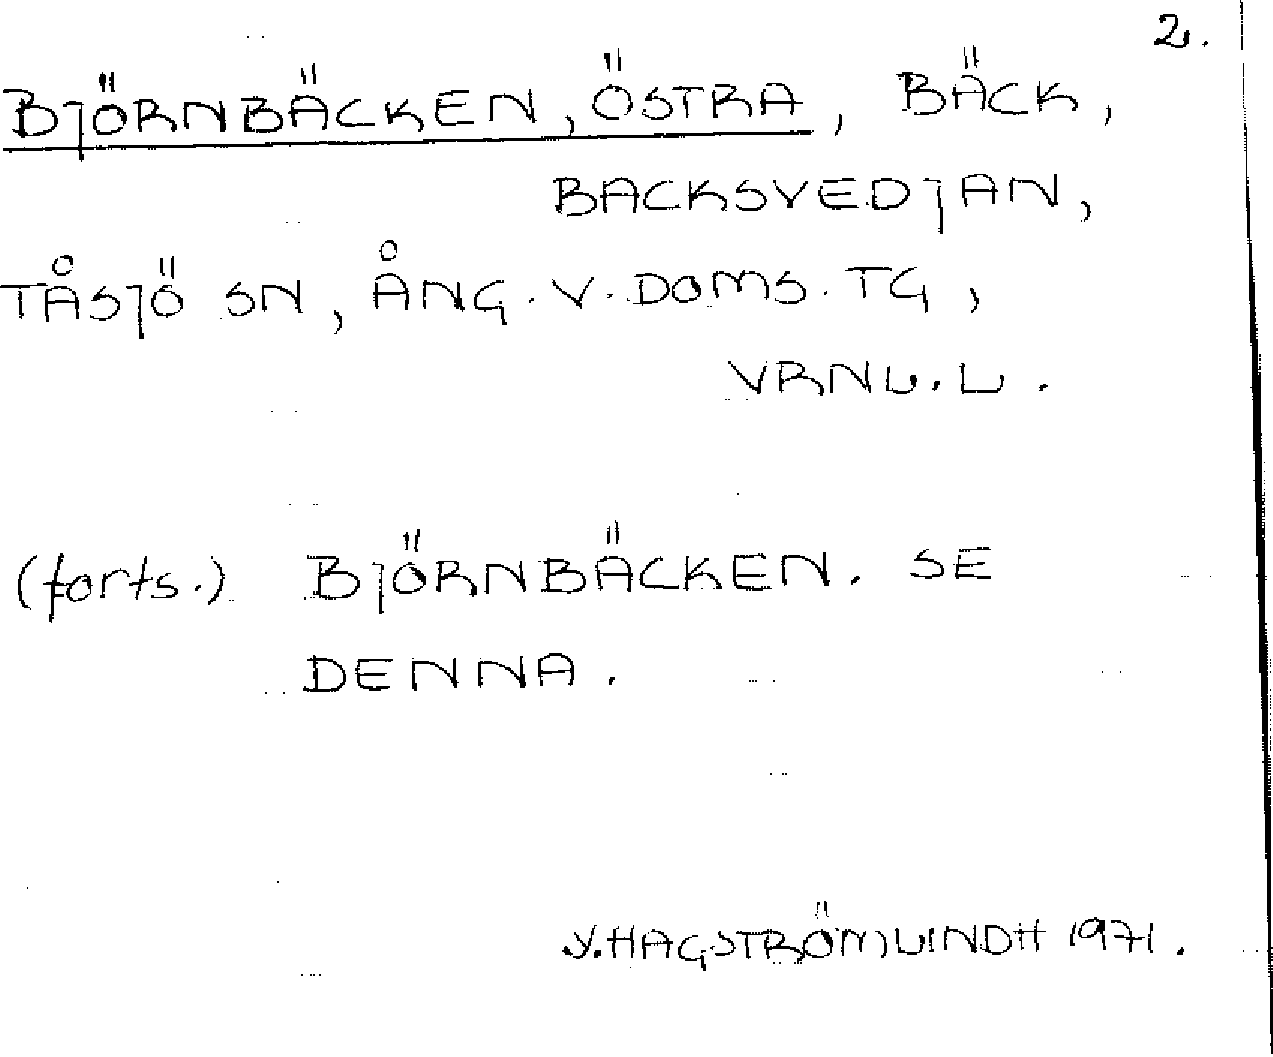 2.
BJÖRNBÄCKEN, ÖSTRA, BÄCK,
BACKSVEDJAN,
TÅSJÖ SN, ÅNG. V. DOMS. TG,
VRNL. L.
(forts.) BJÖRNBÄCKEN. SE
DENNA.
V. HAGSTRÖM LINDH 1971.